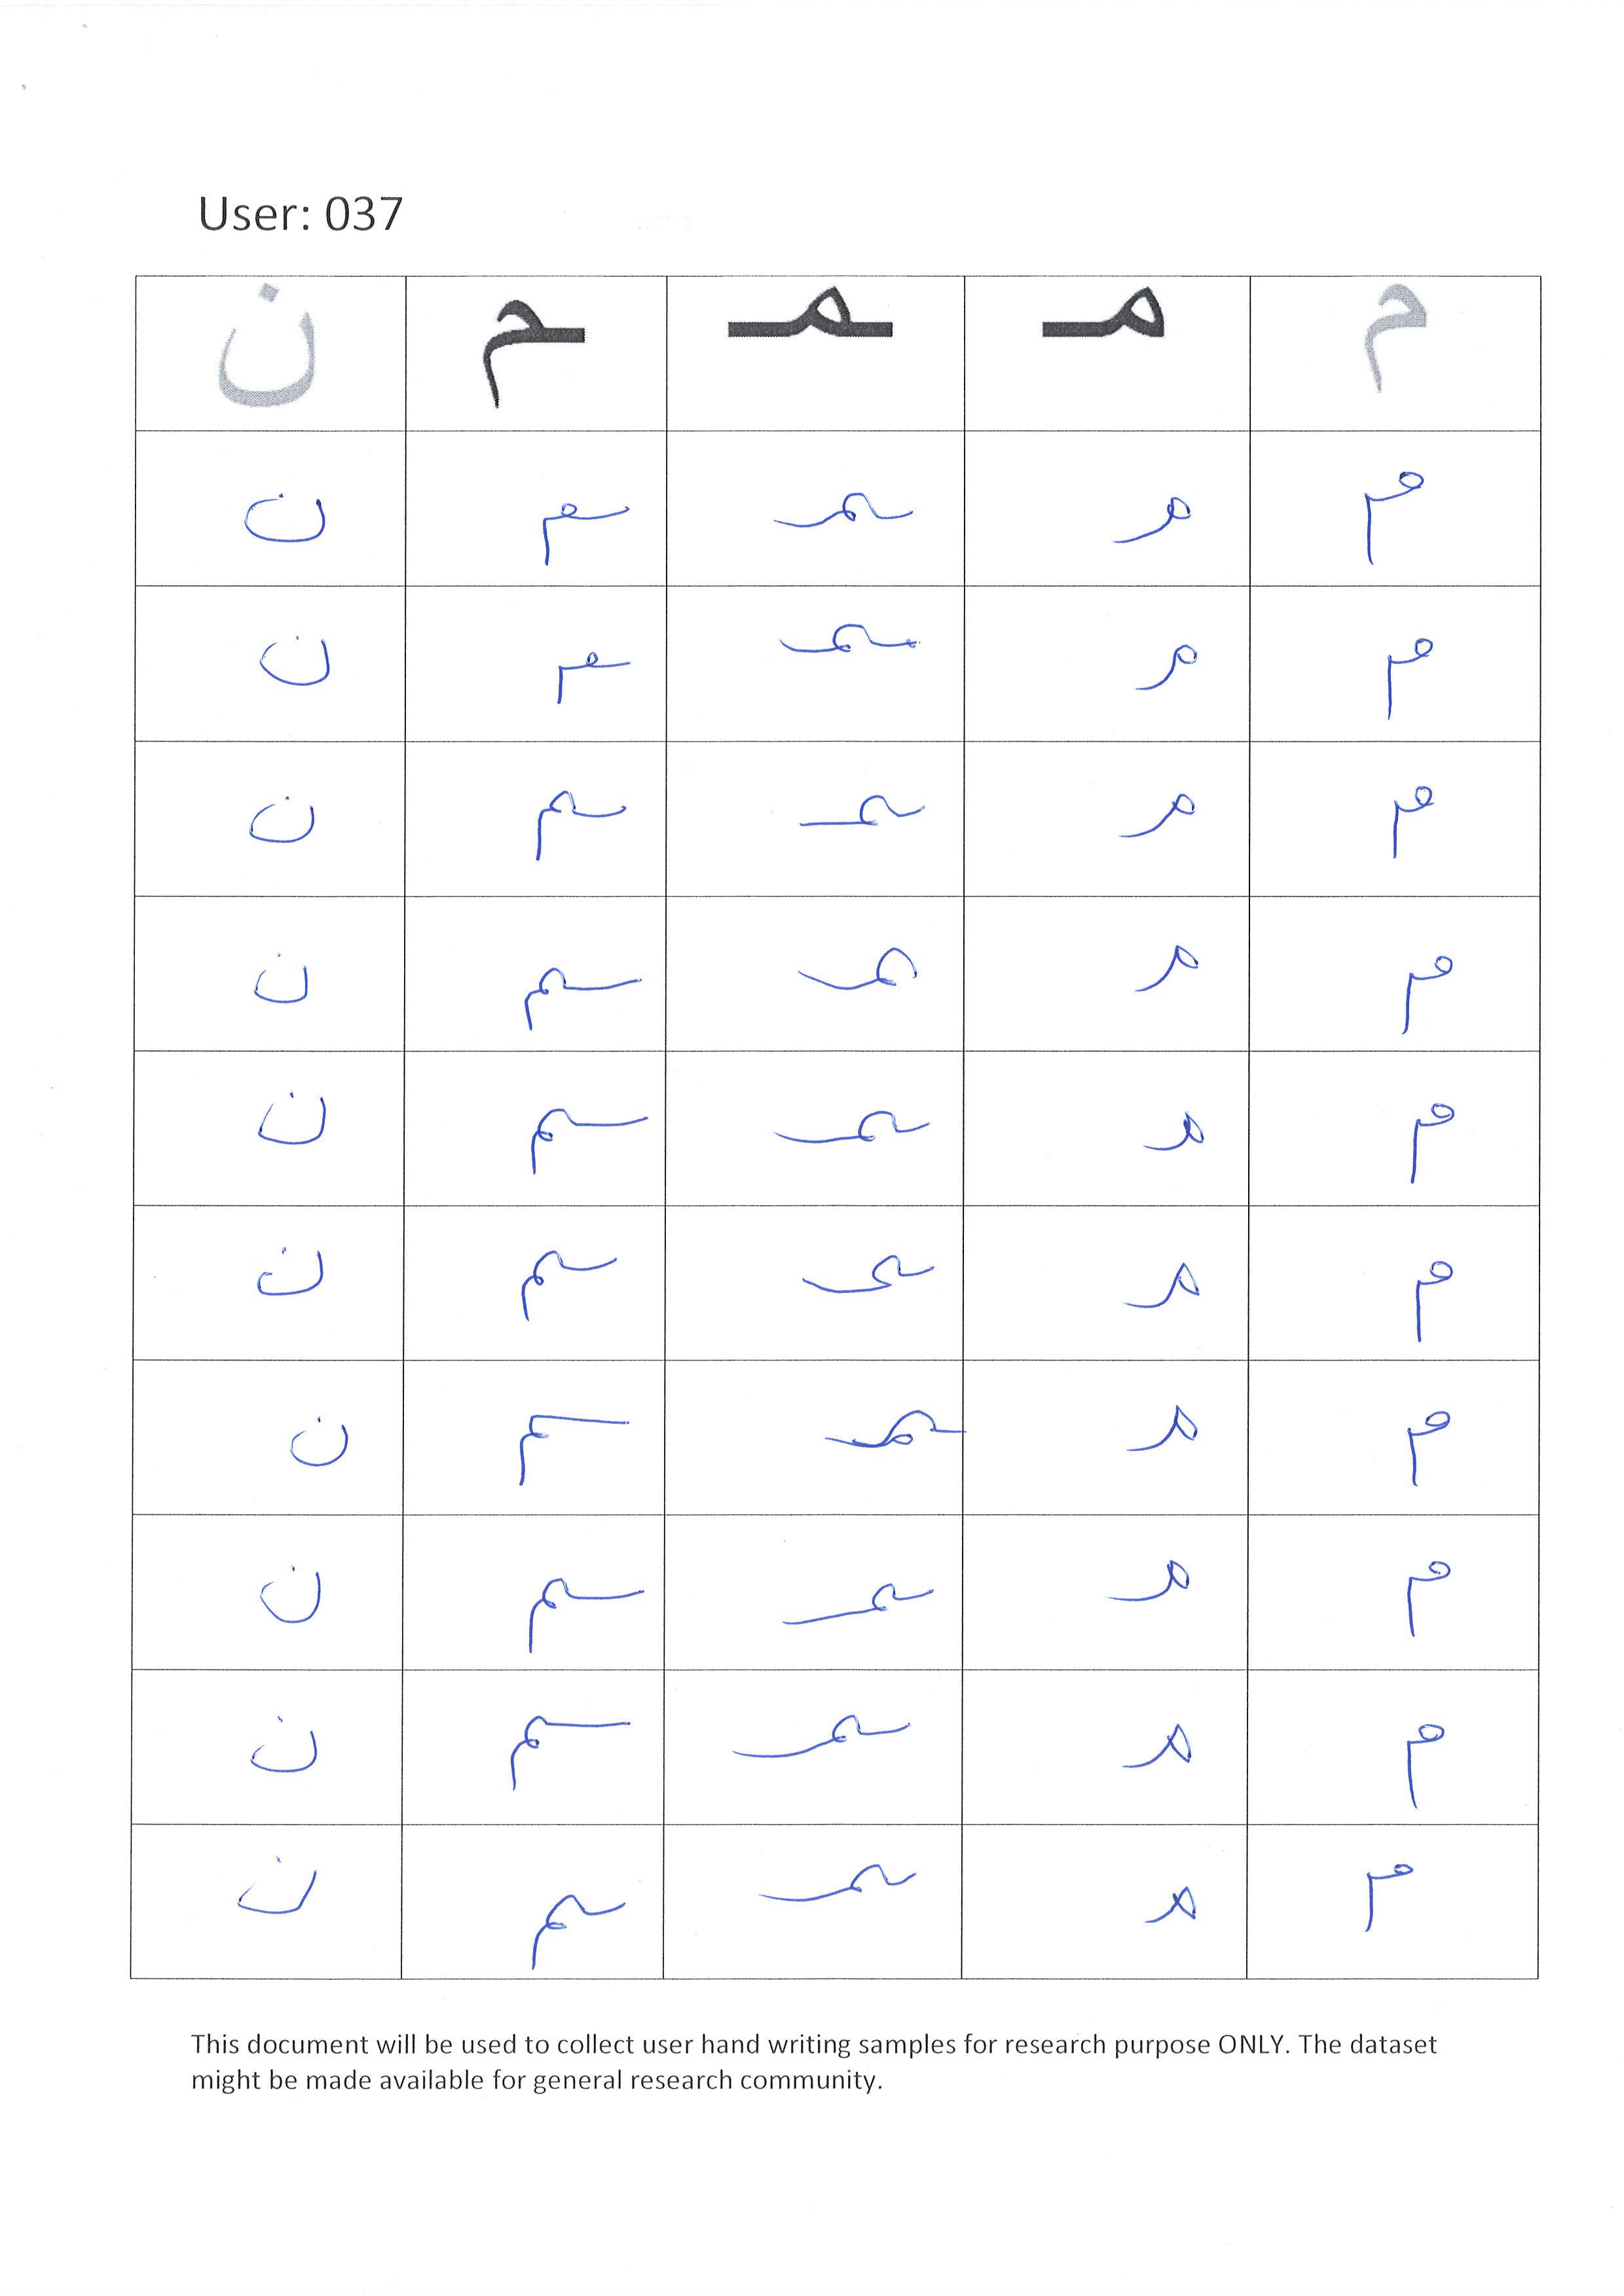 User: 037
م مـ ـمـ ـم ن
م مـ ـمـ ـم ن
م مـ ـمـ ـم ن
م مـ ـمـ ـم ن
م مـ ـمـ ـم ن
م مـ ـمـ ـم ن
م مـ ـمـ ـم ن
م مـ ـمـ ـم ن
م مـ ـمـ ـم ن
م مـ ـمـ ـم ن
م مـ ـمـ ـم ن
This document will be used to collect user hand writing samples for research purpose ONLY. The dataset
might be made available for general research community.